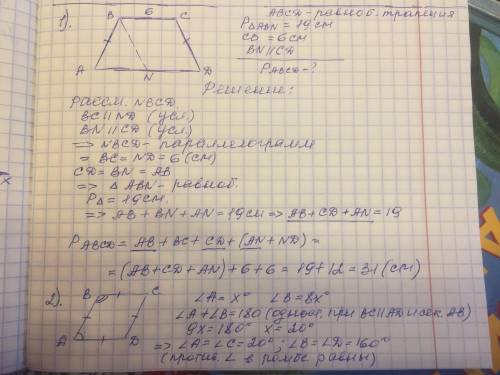 1). B 6 C
A N D
ABCD - равноб. трапеция
P△ABN = 19 см
CB = 6 см
BN || CD
PABCD - ?
Решение:
Рассм. NBCD.
BC || ND (усл.)
BN || CD (усл.)
=> NBCD - параллелограмм
= BC = ND = 6 (см)
CD = BN = AB
=> △ ABN - равноб.
P△ = 19 см.
=> AB + BN + AN = 19 см => AB + CD + AN = 19
PABCD = AB + BC + CD + (AN + ND) =
= (AB + CD + AN) + 6 + 6 = 19 + 12 = 31 (см)
2). B C
A D
∠A = x° ∠B = 8x°
∠A + ∠B = 180 (однос. при BC || AD и сек. AB)
9x = 180° x = 20°
=> ∠A = ∠C = 20°; ∠B = ∠D = 160°
(против. ∠ в ромбе равны)